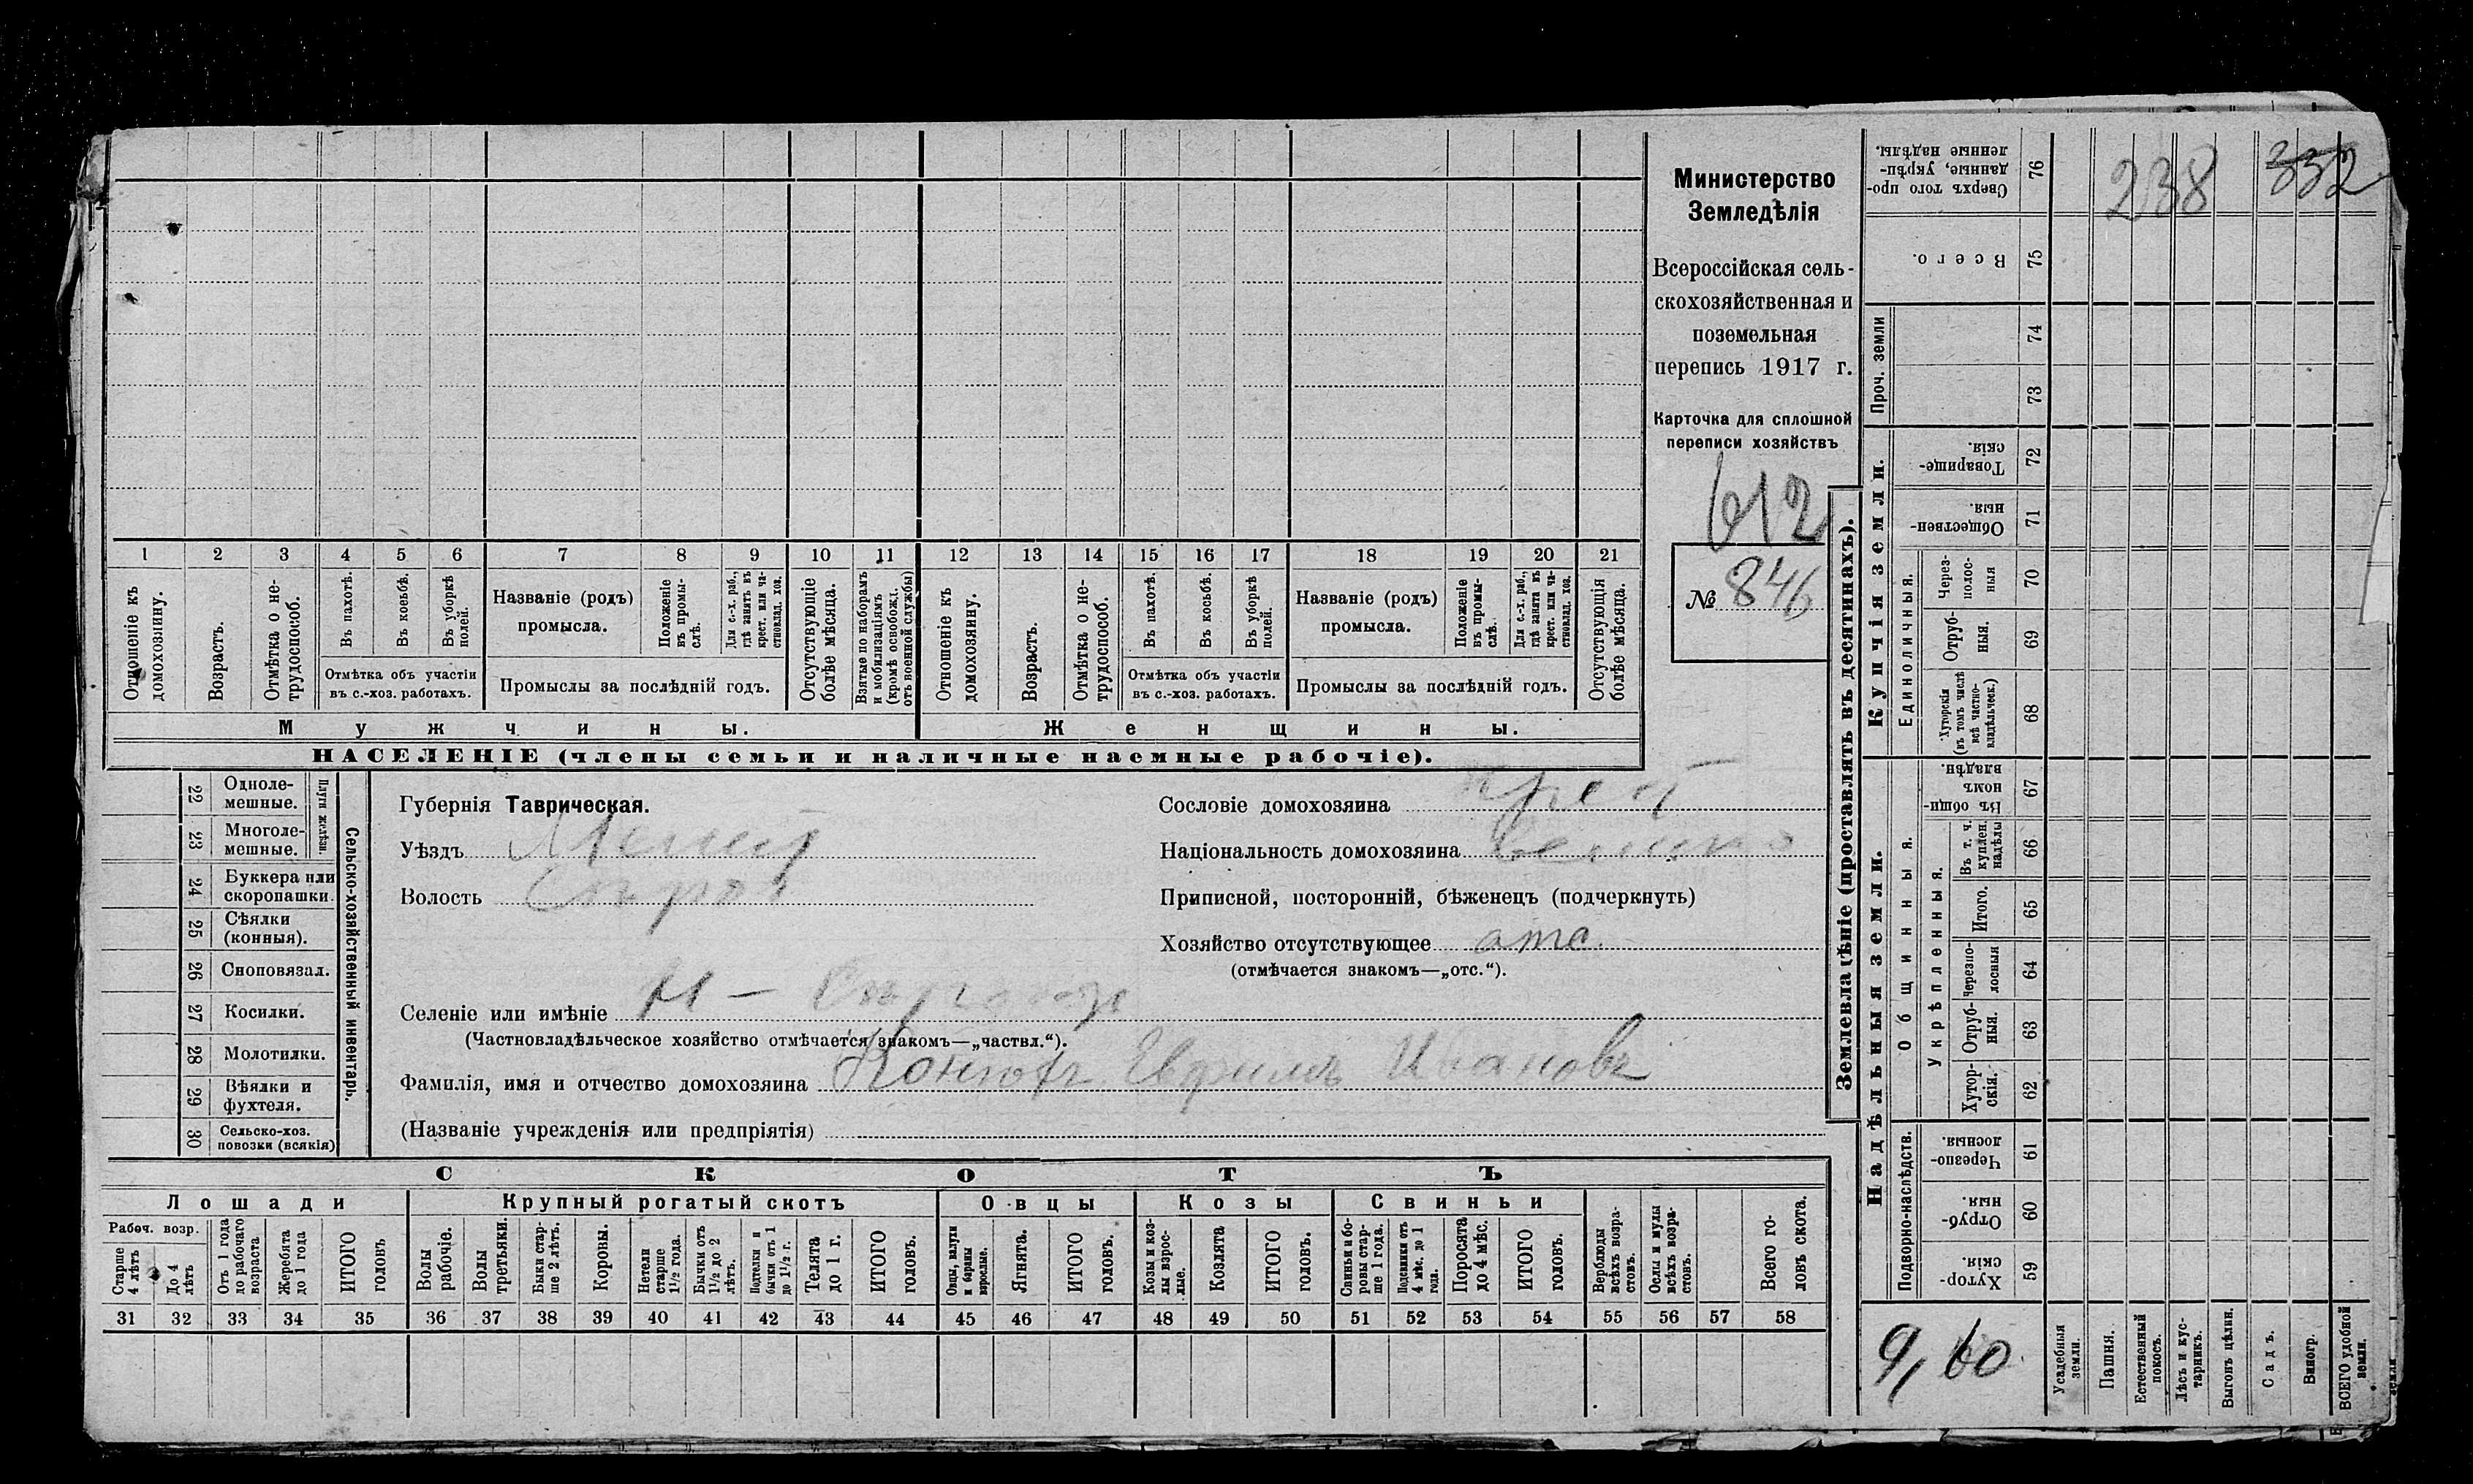 1 2 3 4 5 6 7 8 9 10 11 12 13 14 15 16 17 18 19 20 21
Отношеніе къ домохозяину.
Возрастъ.
Отмѣтка о не-
трудоспособ.
Въ пахотѣ.
Въ косьбѣ.
Въ уборкѣ
полей.
Отмѣтка объ участіи
въ с.-хоз. работахъ.
Названіе (родъ)
промысла.
Положеніе
въ промы-
слѣ.
Для с.-х. раб.,
гдѣ занятъ въ
крест. или ча-
стновлад. хоз.
Промыслы за послѣдній годъ.
Отсутствующіе
болѣе мѣсяца.
Взятые по наборамъ
и мобилизаціямъ
(кромѣ освобожд.
отъ военной службы)
Отношеніе къ
домохозяину.
Возрастъ.
Отмѣтка о не-
трудоспособ.
Въ пахотѣ.
Въ косьбѣ.
Въ уборкѣ
полей.
Отмѣтка объ участіи
въ с.-хоз. работахъ.
Названіе (родъ)
промысла.
Положеніе
въ промы-
слѣ.
Для с.-х. раб.,
гдѣ занята въ
крест. или ча-
стновлад. хоз.
Промыслы за послѣдній годъ.
Отсутствующія
болѣе мѣсяца.
Мужчины.
Женщины.
НАСЕЛЕНІЕ (члены семьи и наличные наемные рабочіе).
Министерство
Земледѣлія
Всероссійская сель-
скохозяйственная и
поземельная
перепись 1917 г.
Карточка для сплошной
переписи хозяйствъ
612
№ 846
22 Одноле-
мешные.
23 Многоле-
мешные.
Плуги желѣзн.
24 Буккера или
скоропашки.
25 Сѣялки
(конныя).
26 Сноповязал.
27 Косилки.
28 Молотилки.
29 Вѣялки и
фухтеля.
30 Сельско-хоз.
повозки (всякія)
Сельско-хозяйственный инвентарь.
Губернія Таврическая.
Уѣздъ Мелит
Волость
Селеніе или имѣніе
(Частновладѣльческое хозяйство отмѣчается знакомъ—„частвл.“).
Фамилія, имя и отчество домохозяина Ефимъ Ивановъ
(Названіе учрежденія или предпріятія)
Сословіе домохозяина крест
Національность домохозяина велико
Приписной, посторонній, бѣженецъ (подчеркнуть)
Хозяйство отсутствующее отс.
(отмѣчается знакомъ—„отс.“).
СКОТЪ
Лошади
Крупный рогатый скотъ
Овцы
Козы
Свиньи
Рабоч. возр.
Старше
4 лѣтъ
До 4
лѣтъ
Отъ 1 года
до рабочаго
возраста
Жеребята
до 1 года
ИТОГО
головъ
Волы
рабочіе.
Волы
третьяки.
Быки стар-
ше 2 лѣтъ.
Коровы.
Нетели
старше
1½ года.
Бычки отъ
1½ до 2
лѣтъ.
Подтелки и
бычки отъ 1
до 1½ г.
Телята
до 1 г.
ИТОГО
головъ.
Овцы, валухи
и бараны
взрослые.
Ягнята.
ИТОГО
головъ.
Козы и коз-
лы взрос-
лые.
Козлята
ИТОГО
головъ.
Свиньи и бо-
ровы стар-
ше 1 года.
Подсвинки отъ
4 мѣс. до 1
года.
Поросята
до 4 мѣс.
ИТОГО
головъ.
Верблюды
всѣхъ возра-
стовъ.
Ослы и мулы
всѣхъ возра-
стовъ.
Всего го-
ловъ скота.
31 32 33 34 35 36 37 38 39 40 41 42 43 44 45 46 47 48 49 50 51 52 53 54 55 56 57 58
Землевладѣніе (проставлять въ десятинахъ).
Надѣльныя земли.
Купчія земли.
Проч. земли
Подворно-наслѣдств.
Общинныя.
Укрѣпленныя.
Единоличныя.
Сверхъ того про-
данные, укрѣп-
ленные надѣлы.
76
Всего.
75
74
73
Товарище-
скія.
72
Обществен-
ныя.
71
Через-
полос-
ныя
70
Отруб-
ныя.
69
Хуторскія
(въ томъ числѣ
всѣ частно-
владѣльческ.)
68
Въ общин-
номъ
владѣн.
67
Въ т. ч.
куплен.
надѣлы
66
Итого.
65
Черезпо-
лосныя
64
Отруб-
ныя.
63
Хутор-
скія.
62
Черезпо-
лосныя.
61
Отруб-
ныя.
60
Хутор-
скія.
59
238
332
9,60
Усадебныя
земли.
Пашня.
Естественный
покосъ.
Лѣсъ и кус-
тарникъ.
Выгонъ цѣлин.
Садъ.
Виногр.
ВСЕГО удобной
земли.